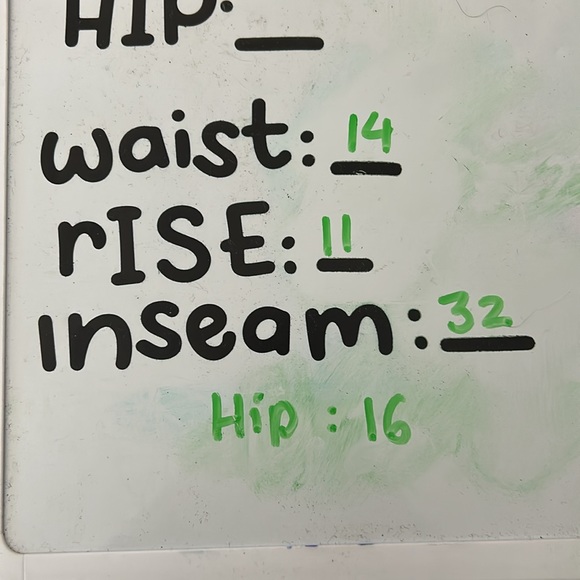 HIP: __
waist: 14
rISE: 11
Inseam: 32
Hip : 16